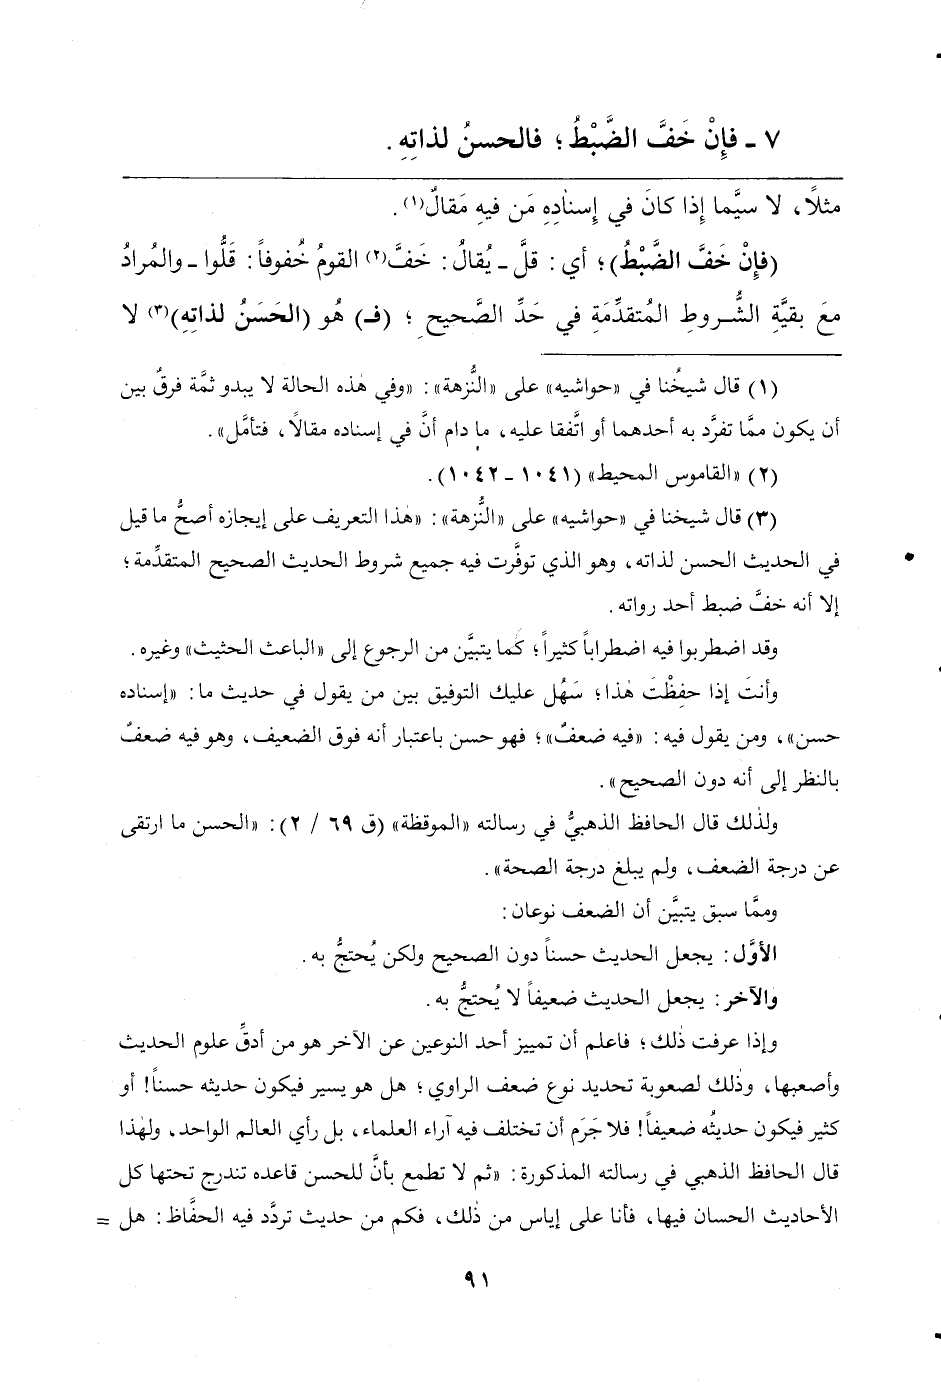 ٧ ـ فإِنْ خَفَّ الضَّبْطُ ؛ فالحسنُ لذاتِهِ .
مثلاً، لا سيَّما إِذا كانَ في إِسنادِهِ مَن فيهِ مَقالٌ(١).
(فإِنْ خَفَّ الضَّبْطُ)؛ أي: قلَّ ـ يُقالُ: خَفَّ(٢) القومُ خُفوفاً: قَلُّوا ـ والمُرادُ
معَ بقيَّةِ الشُّروطِ المُتقدِّمَةِ في حَدِّ الصَّحيحِ ؛ (فـ) هُو (الحَسَنُ لذاتِه)(٣) لا
(١) قال شيخُنا في «حواشيه» على «النُّزهة»: «وفي هٰذه الحالة لا يبدو ثمَّة فرقٌ بين
أن يكون ممَّا تفرَّد به أحدهما أو اتَّفقا عليه، ما دام أنَّ في إسناده مقالاً، فتأمَّل».
(٢) «القاموس المحيط» (١٠٤١ ـ ١٠٤٢).
(٣) قال شيخنا في «حواشيه» على «النُّزهة»: «هٰذا التعريف على إيجازه أصحُّ ما قيل
في الحديث الحسن لذاته، وهو الذي توفَّرت فيه جميع شروط الحديث الصحيح المتقدِّمة؛
إلا أنه خفَّ ضبط أحد رواته.
وقد اضطربوا فيه اضطراباً كثيراً؛ كما يتبيَّن من الرجوع إلى «الباعث الحثيث» وغيره.
وأنتَ إذا حفِظْتَ هٰذا؛ سَهُل عليك التوفيق بين من يقول في حديث ما: «إسناده
حسن»، ومن يقول فيه: «فيه ضعفٌ»؛ فهو حسن باعتبار أنه فوق الضعيف، وهو فيه ضعفٌ
بالنظر إلى أنه دون الصحيح».
ولذٰلك قال الحافظ الذهبيُّ في رسالته «الموقظة» (ق ٦٩ / ٢): «الحسن ما ارتقى
عن درجة الضعف، ولم يبلغ درجة الصحة».
وممَّا سبق يتبيَّن أن الضعف نوعان:
الأوَّل: يجعل الحديث حسناً دون الصحيح ولكن يُحتجُّ به.
والآخر: يجعل الحديث ضعيفاً لا يُحتجُّ به.
وإذا عرفت ذٰلك؛ فاعلم أن تمييز أحد النوعين عن الآخر هو من أدقِّ علوم الحديث
وأصعبها، وذٰلك لصعوبة تحديد نوع ضعف الراوي؛ هل هو يسير فيكون حديثه حسناً! أو
كثير فيكون حديثُه ضعيفاً! فلا جَرَم أن تختلف فيه آراء العلماء، بل رأي العالم الواحد، ولهٰذا
قال الحافظ الذهبي في رسالته المذكورة: «ثم لا تطمع بأنَّ للحسن قاعده تندرج تحتها كل
الأحاديث الحسان فيها، فأنا على إياس من ذٰلك، فكم من حديث تردَّد فيه الحفَّاظ: هل =
٩١